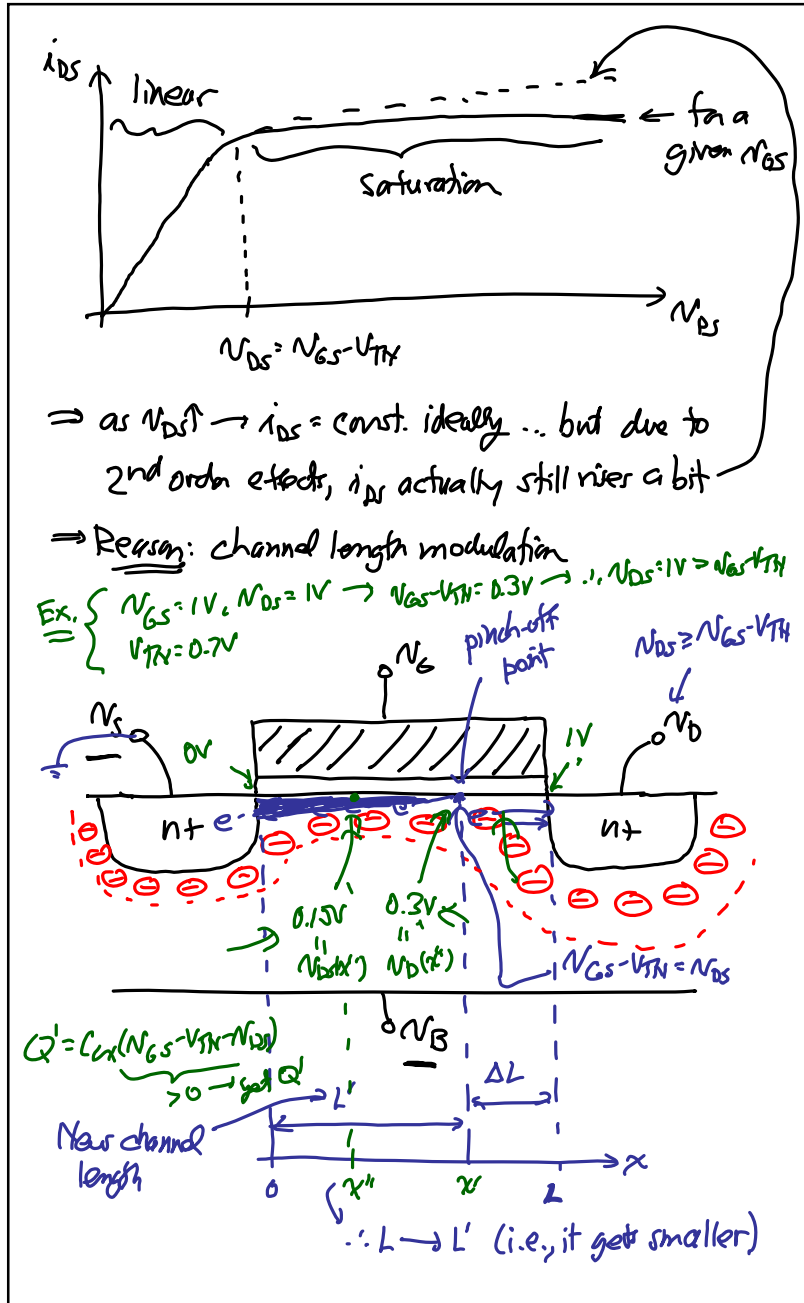 i_DS
linear
← for a
given v_GS
saturation
v_DS
v_DS = v_GS - V_TN
⇒ as v_DS↑ → i_DS = const. ideally ... but due to
2nd order effects, i_DS actually still rises a bit
⇒ Reason: channel length modulation
Ex. { v_GS = 1V, v_DS = 1V → v_GS - V_TN = 0.3V → ∴ v_DS = 1V > v_GS - V_TN
V_TN = 0.7V
pinch-off
point
v_DS ≥ v_GS - V_TN
v_G
v_S
v_D
0V
1V
n+
e-
n+
0.15V
0.3V
=
=
v_DS(x'')
v_D(x')
v_GS - V_TN = v_DS
v_B
Q' = C_ox(v_GS - V_TN - v_DS)
>0 → get Q'
L'
ΔL
New channel
length
0
x''
x'
L
x
∴ L → L' (i.e., it gets smaller)